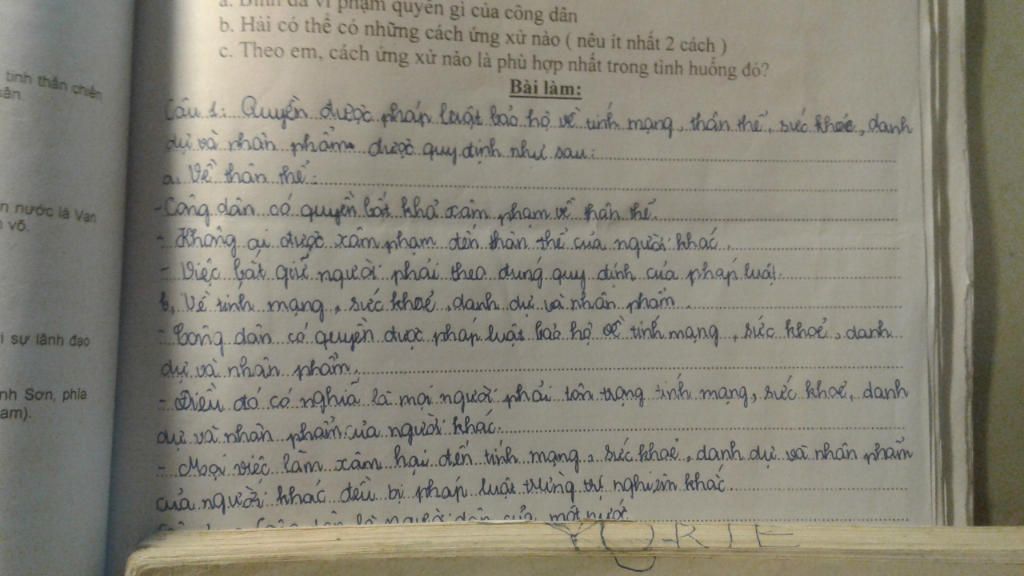 a. Bình đã vi phạm quyền gì của công dân
b. Hải có thể có những cách ứng xử nào ( nêu ít nhất 2 cách )
c. Theo em, cách ứng xử nào là phù hợp nhất trong tình huống đó?
Bài làm:
Câu 1: Quyền được pháp luật bảo hộ về tính mạng, thân thể, sức khoẻ, danh
dự và nhân phẩm được quy định như sau:
a, Về thân thể:
- Công dân có quyền bất khả xâm phạm về thân thể.
- Không ai được xâm phạm đến thân thể của người khác.
- Việc bắt giữ người phải theo đúng quy định của pháp luật.
b, Về tính mạng, sức khoẻ, danh dự và nhân phẩm.
- Công dân có quyền được pháp luật bảo hộ về tính mạng, sức khoẻ, danh
dự và nhân phẩm.
- Điều đó có nghĩa là mọi người phải tôn trọng tính mạng, sức khoẻ, danh
dự và nhân phẩm của người khác.
- Mọi việc làm xâm hại đến tính mạng, sức khoẻ, danh dự và nhân phẩm
của người khác đều bị pháp luật trừng trị nghiêm khắc.
là người dân của một nước
tinh thần chiến
n nước là Vạn
võ.
i sự lãnh đạo
nh Sơn, phía
am).